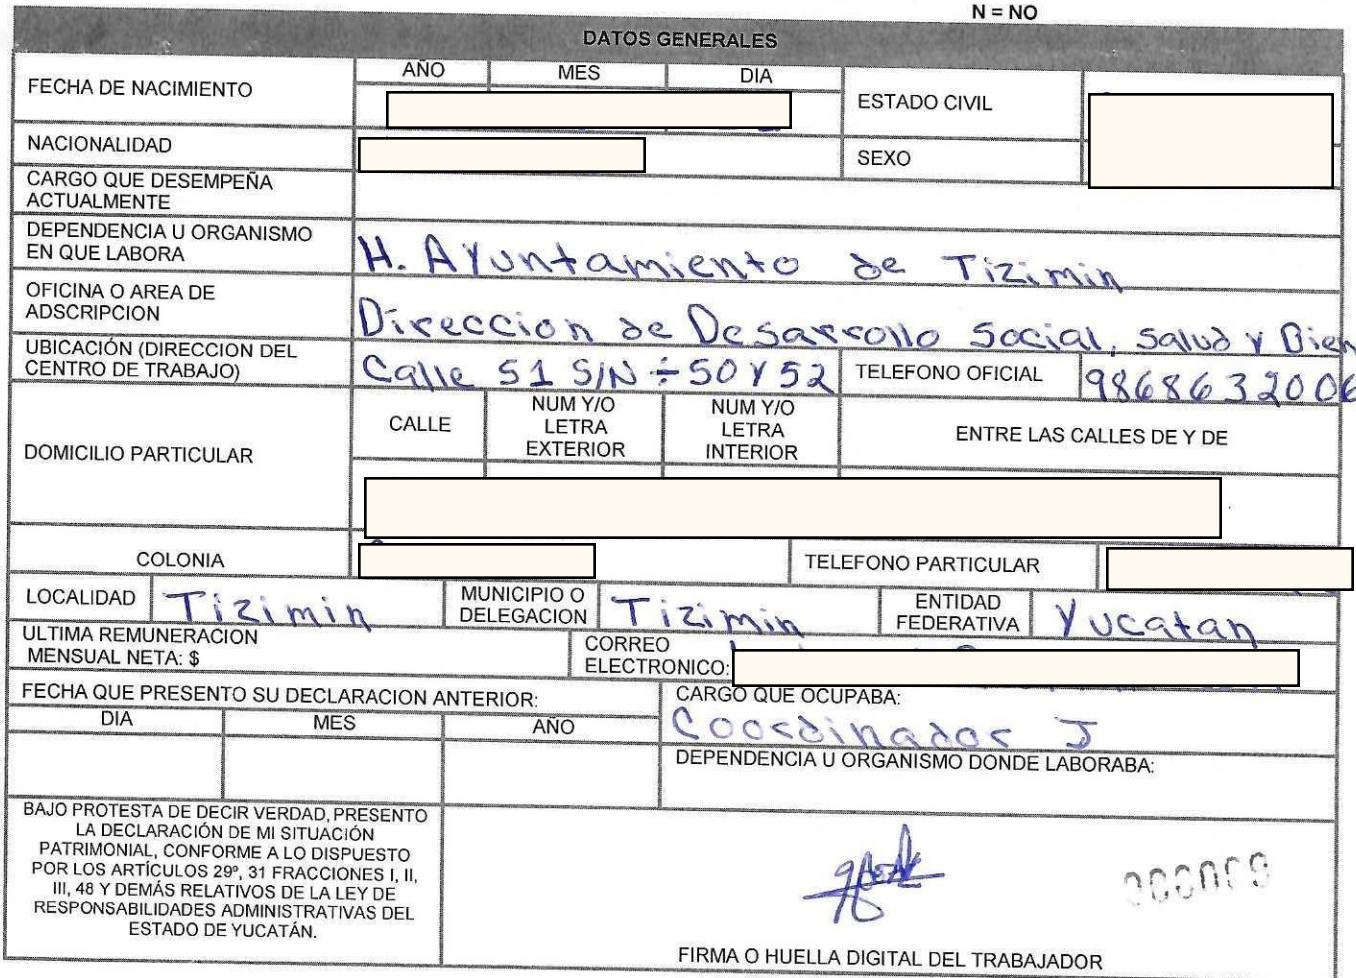 N = NO
DATOS GENERALES
FECHA DE NACIMIENTO
AÑO MES DIA
ESTADO CIVIL
NACIONALIDAD
SEXO
CARGO QUE DESEMPEÑA
ACTUALMENTE
DEPENDENCIA U ORGANISMO
EN QUE LABORA
H. AYuntamiento de Tizimin
OFICINA O AREA DE
ADSCRIPCION
Direccion de Desarrollo Social, Salud y Bien
UBICACIÓN (DIRECCION DEL
CENTRO DE TRABAJO)
Calle 51 S/N ÷ 50 Y 52
TELEFONO OFICIAL
9868632006
DOMICILIO PARTICULAR
CALLE
NUM Y/O
LETRA
EXTERIOR
NUM Y/O
LETRA
INTERIOR
ENTRE LAS CALLES DE Y DE
COLONIA
TELEFONO PARTICULAR
LOCALIDAD Tizimin
MUNICIPIO O
DELEGACION
Tizimin
ENTIDAD
FEDERATIVA
Yucatan
ULTIMA REMUNERACION
MENSUAL NETA: $
CORREO
ELECTRONICO:
FECHA QUE PRESENTO SU DECLARACION ANTERIOR:
DIA MES AÑO
CARGO QUE OCUPABA:
Coordinador J
DEPENDENCIA U ORGANISMO DONDE LABORABA:
BAJO PROTESTA DE DECIR VERDAD, PRESENTO
LA DECLARACIÓN DE MI SITUACIÓN
PATRIMONIAL, CONFORME A LO DISPUESTO
POR LOS ARTÍCULOS 29º, 31 FRACCIONES I, II,
III, 48 Y DEMÁS RELATIVOS DE LA LEY DE
RESPONSABILIDADES ADMINISTRATIVAS DEL
ESTADO DE YUCATÁN.
000009
FIRMA O HUELLA DIGITAL DEL TRABAJADOR